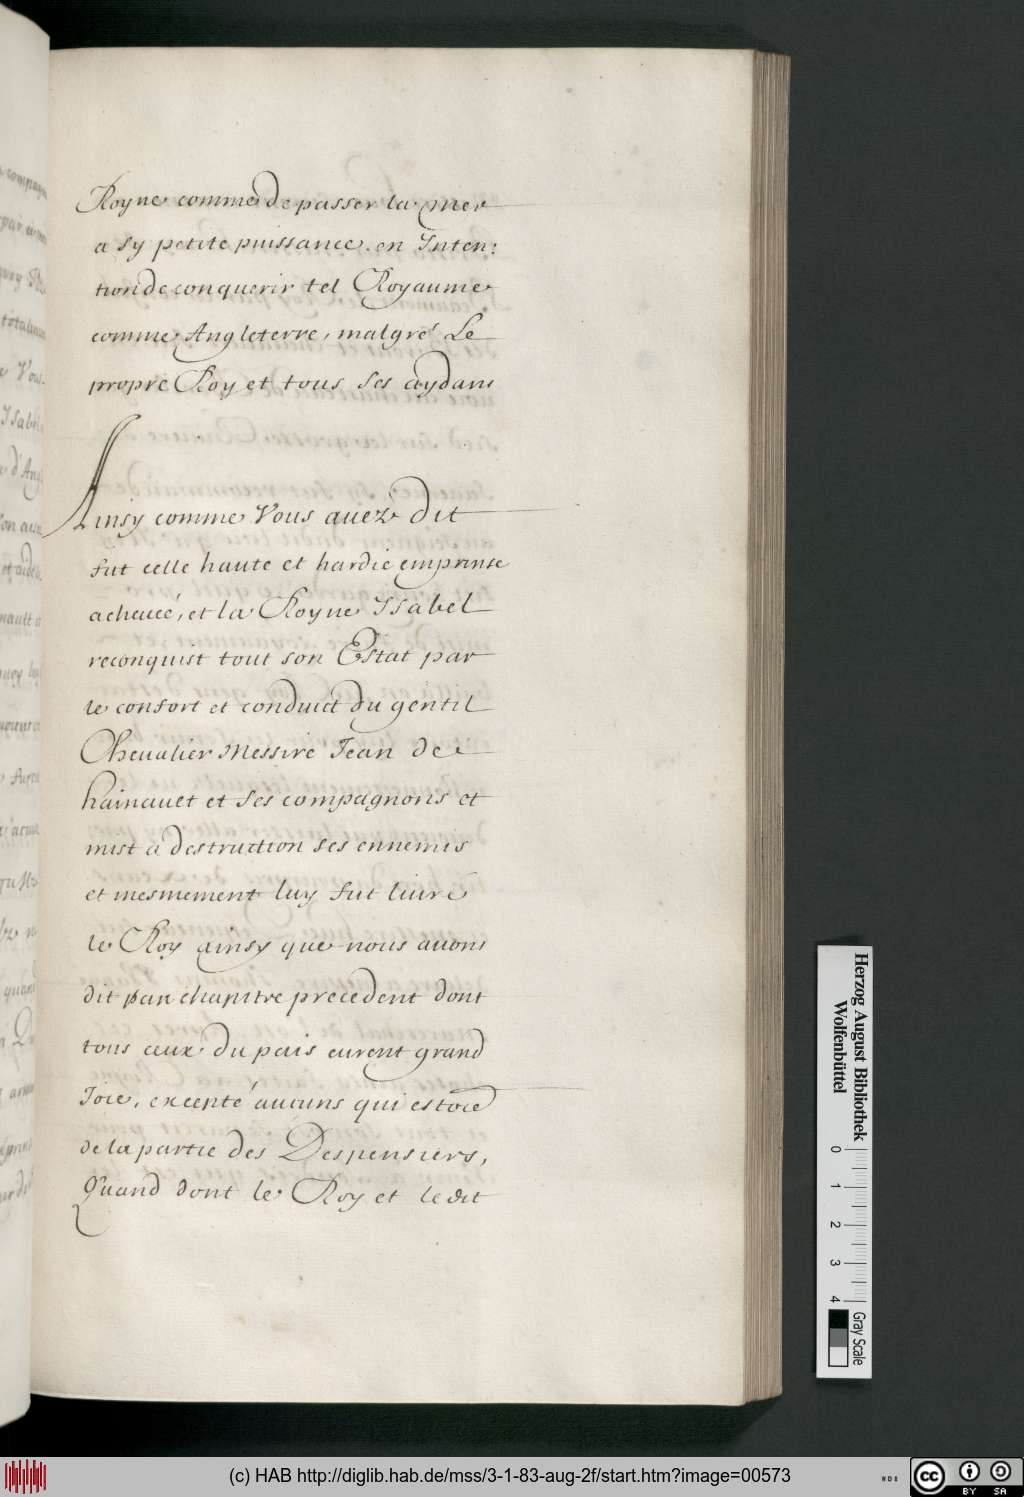 Royne comme de passer la mer
a sy petite puissance en Inten:
tion de conquerir tel Royaume
comme Angleterre, malgré Le
propre Roy et tous ses aydans
Ainsy comme Vous auez dit
fut celle haute et hardie emprinse
acheueé, et la Royne Isabel
reconquist tout son Estat par
le confort et conduict du gentil
Chevalier Messire Jean de
hainauet et ses compagnons et
mist a destruction ses ennemis
et mesmement luy fut liuré
le Roy ainsy que nous auons
dit par chapitre precedent dont
tous ceux du pais eurent grand
Joie, excepté aucuns qui estoie
de la partie des Despensiers,
Quand dont le Roy et ledit
Herzog August Bibliothek
Wolfenbüttel
0 1 2 3 4
Gray Scale
(c) HAB http://diglib.hab.de/mss/3-1-83-aug-2f/start.htm?image=00573
WDB
cc
BY SA